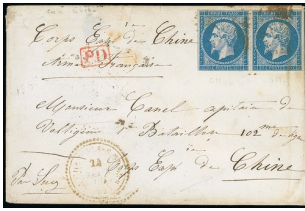 Corps Expre de Chine
Armée Française
PD
Monsieur Canel capitaine de
Voltigeurs 2e Bataillon 102me de ligne
Corps Expre de Chine